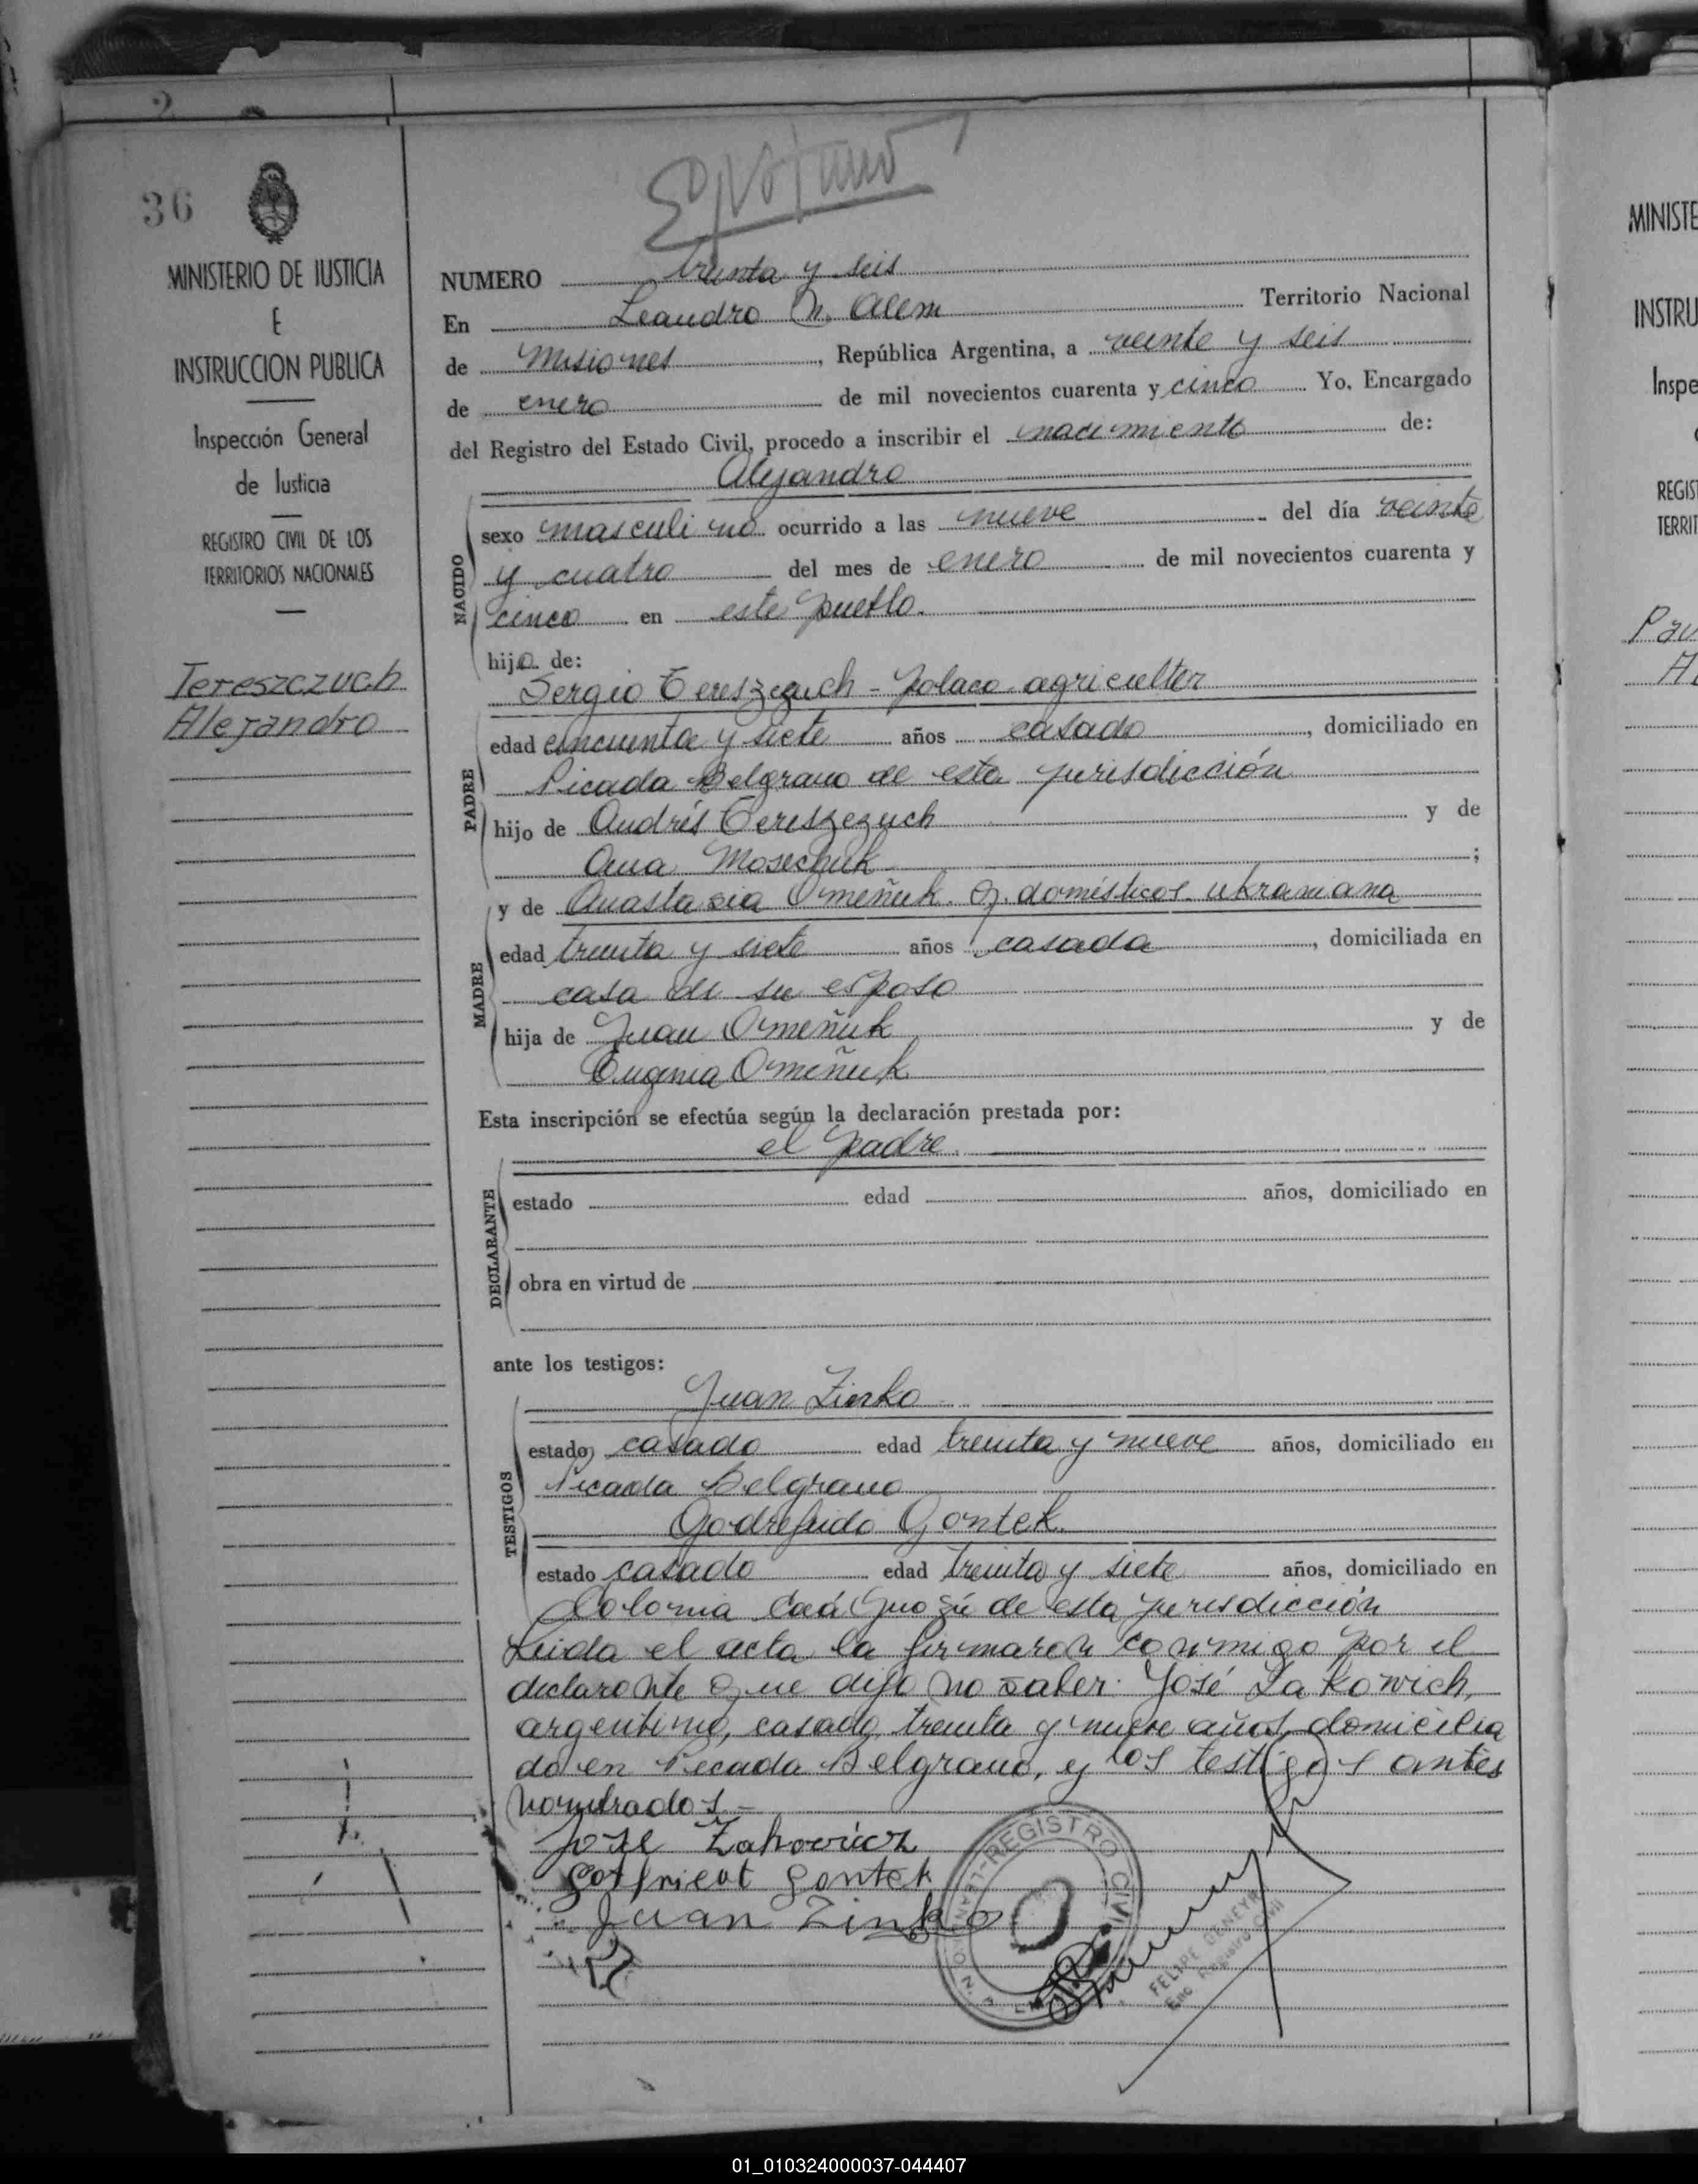 2
36
MINISTERIO DE JUSTICIA
E
INSTRUCCION PUBLICA
Inspección General
de Justicia
REGISTRO CIVIL DE LOS
TERRITORIOS NACIONALES
Tereszczuch
Alejandro
NUMERO treinta y seis
En Leandro N. Alem Territorio Nacional
de Misiones, República Argentina, a veinte y seis
de enero de mil novecientos cuarenta y cinco Yo, Encargado
del Registro del Estado Civil, procedo a inscribir el nacimiento de:
Alejandro
NACIDO
sexo masculino ocurrido a las nueve del día veinte
y cuatro del mes de enero de mil novecientos cuarenta y
cinco en este pueblo.
hijo de:
Sergio Tereszczuch - polaco - agricultor
PADRE
edad cincuenta y siete años casado, domiciliado en
Picada Belgrano de esta jurisdicción
hijo de Andrés Tereszczuch y de
Ana Mosechuk;
y de Anastasia Omeñuk. q. domésticos. ukraniana
MADRE
edad treinta y siete años casada, domiciliada en
casa de su esposo
hija de Juan Omeñuk y de
Eugenia Omeñuk
Esta inscripción se efectúa según la declaración prestada por:
el padre.
DECLARANTE
estado edad años, domiciliado en
obra en virtud de
ante los testigos:
Juan Zinko
TESTIGOS
estado casado edad treinta y nueve años, domiciliado en
Picada Belgrano
Godrefuido Gontek.
estado casado edad treinta y siete años, domiciliado en
Colonia Caá Guazú de esta jurisdicción
Leida el acta la firmaron conmigo por el
declarante que dijo no saber: José Zakowich,
argentino, casado, treinta y nueve años, domicilia
do en Picada Belgrano, y los testigos antes
nombrados.-
Jose Zakowicz
Gotfrieat Gontek
Juan Zinko
REGISTRO CIVIL
FELIPE
Enc Registro Civil
MINISTE
INSTRU
Inspe
REGIS
TERRIT
01_010324000037-044407